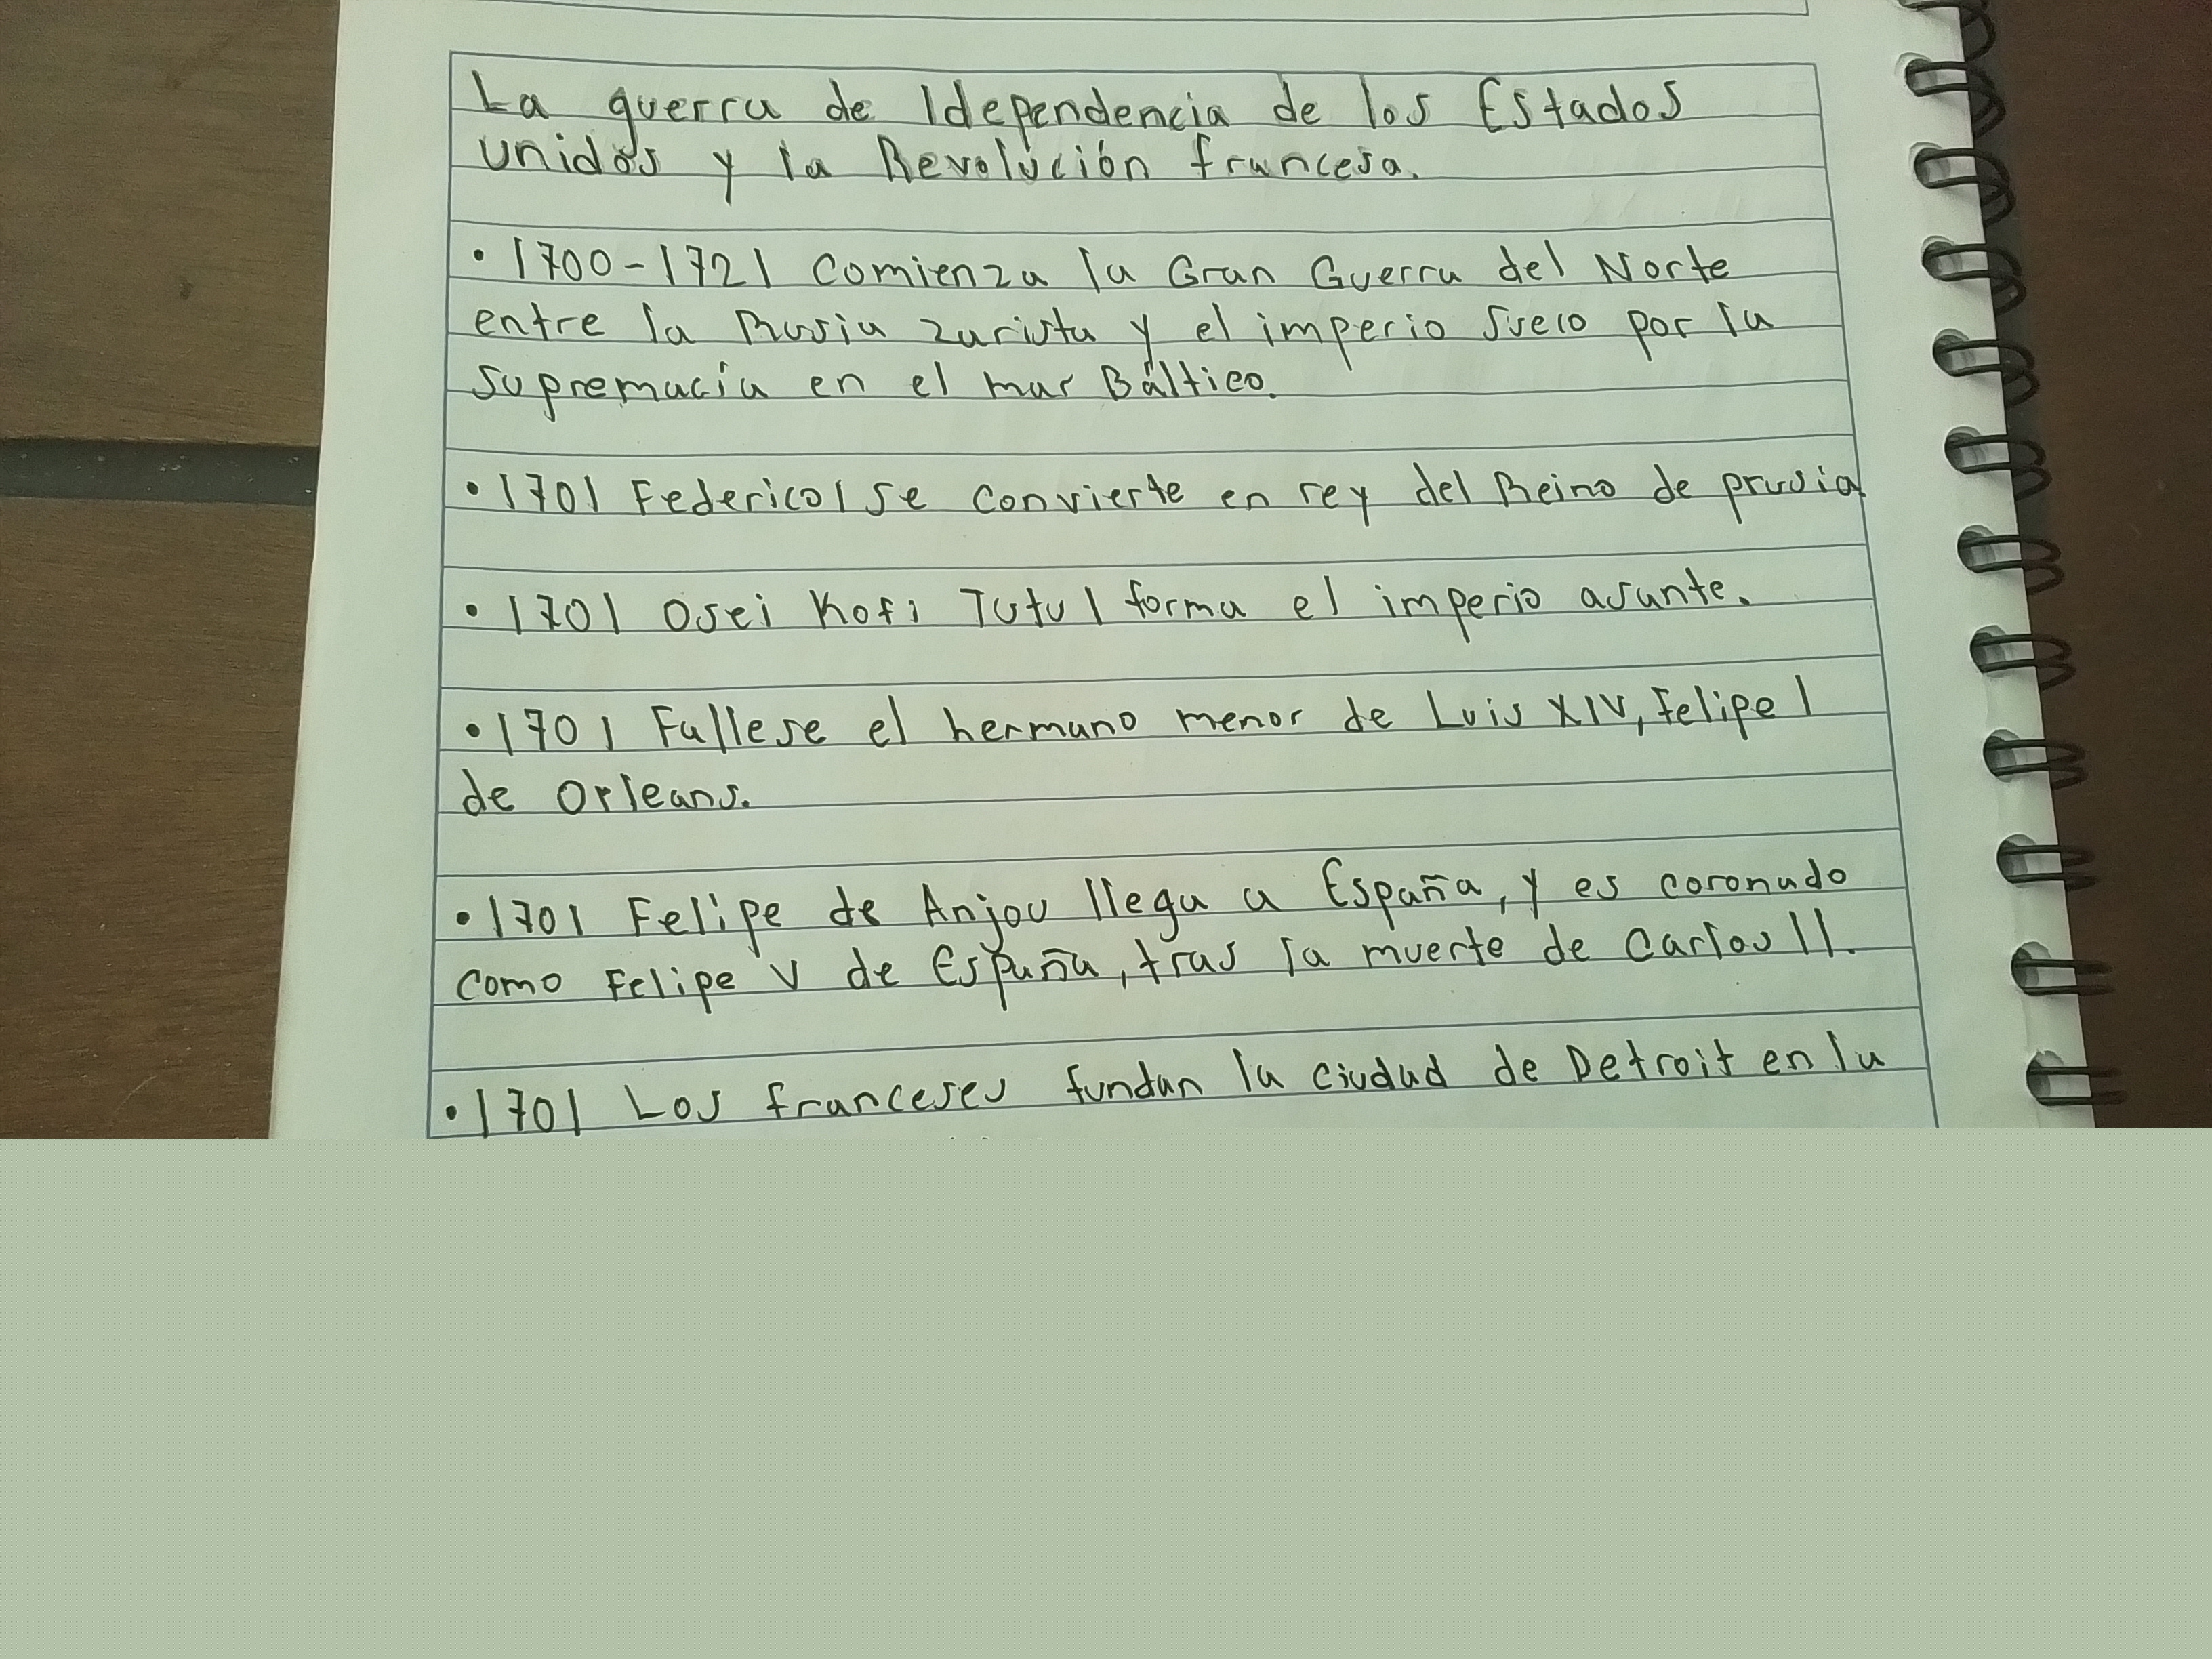 La guerra de Idependencia de los Estados
unidos y la Revolución francesa.
• 1700-1721 Comienza la Gran Guerra del Norte
entre la Rusia zarista y el imperio sueco por la
supremacía en el mar Báltico.
• 1701 Federico I se convierte en rey del Reino de prusia
• 1701 Osei Kofi Tutu I forma el imperio asante.
• 1701 Fallese el hermano menor de Luis XIV, Felipe I
de Orleans.
• 1701 Felipe de Anjou llega a España, y es coronado
como Felipe V de España, tras la muerte de Carlos II.
• 1701 Los franceses fundan la ciudad de Detroit en la